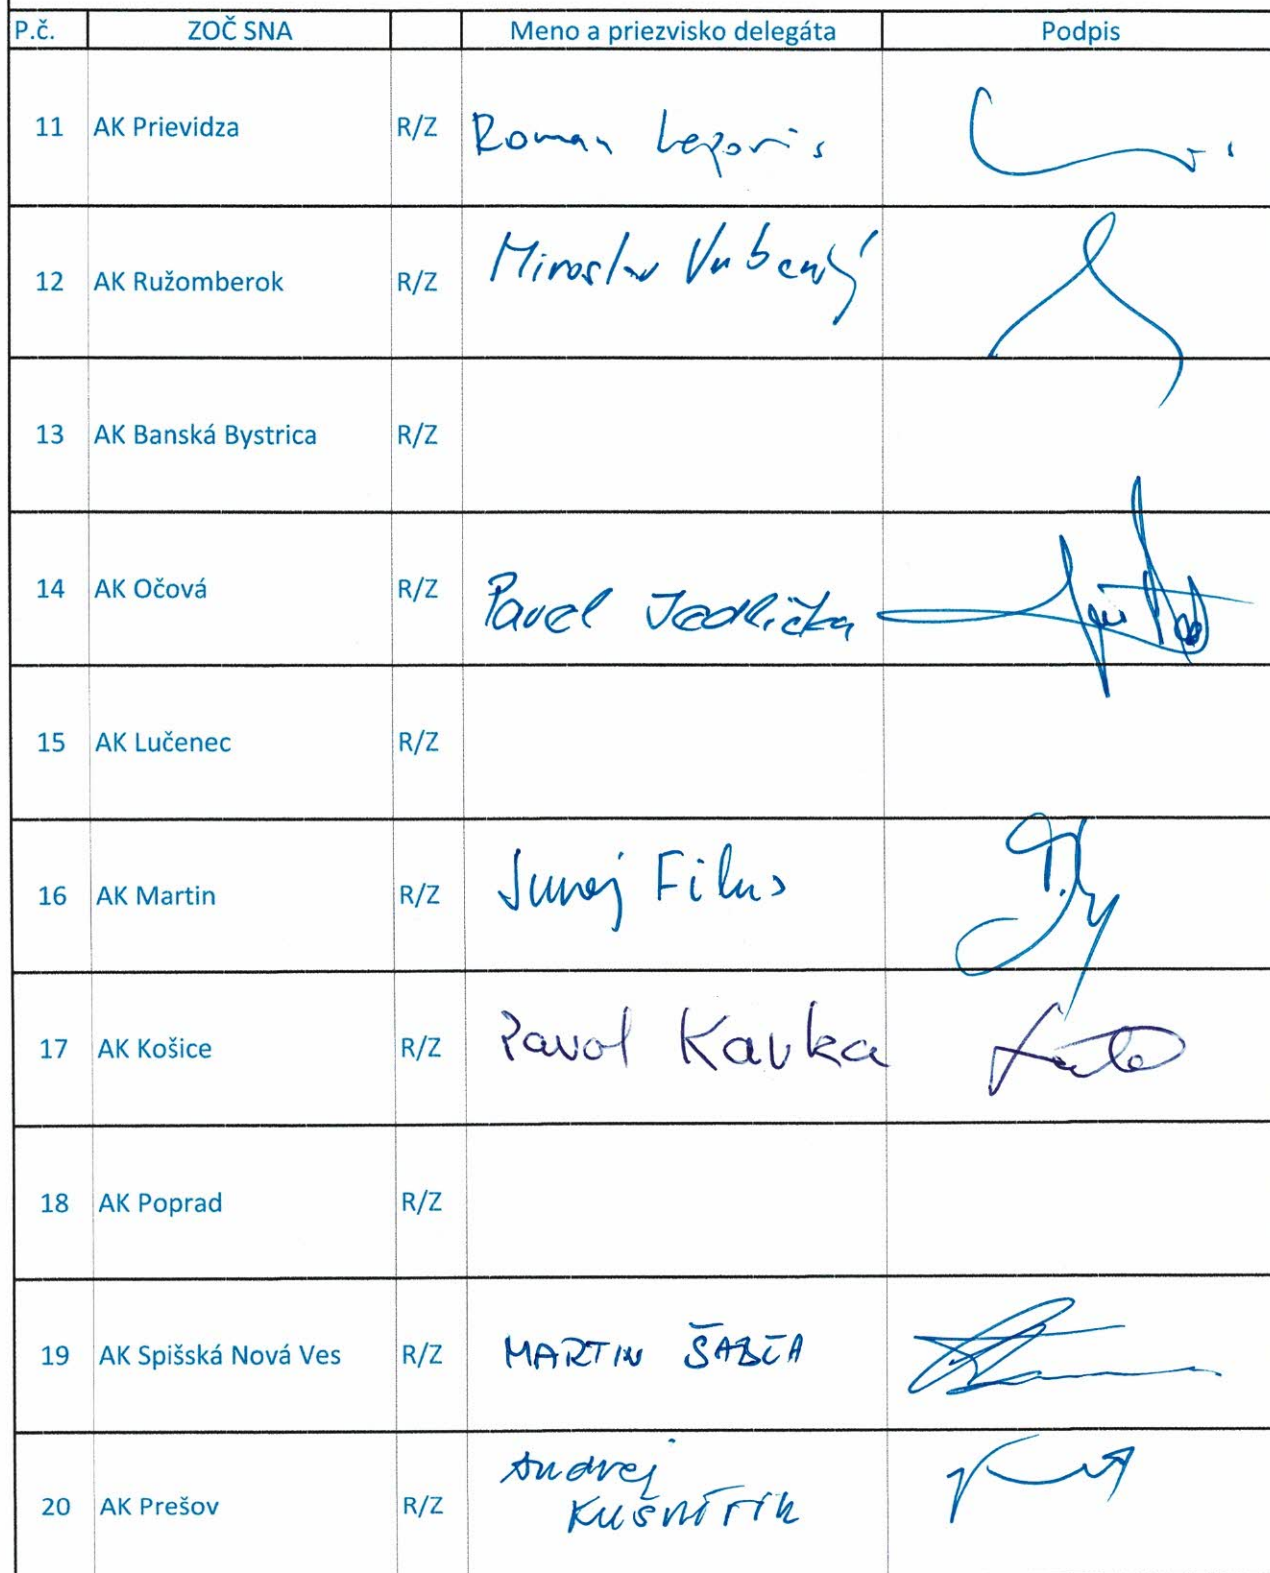 P.č. ZOČ SNA Meno a priezvisko delegáta Podpis
11 AK Prievidza R/Z Roman Leporis
12 AK Ružomberok R/Z Miroslav Vrbenský
13 AK Banská Bystrica R/Z
14 AK Očová R/Z Pavel Jedlička
15 AK Lučenec R/Z
16 AK Martin R/Z Juraj Filus
17 AK Košice R/Z Pavol Kavka
18 AK Poprad R/Z
19 AK Spišská Nová Ves R/Z MARTIN
20 AK Prešov R/Z Andrej